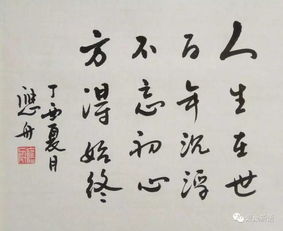 人生在世
百年沉浮
不忘初心
方得始终
丁酉夏月
应舟